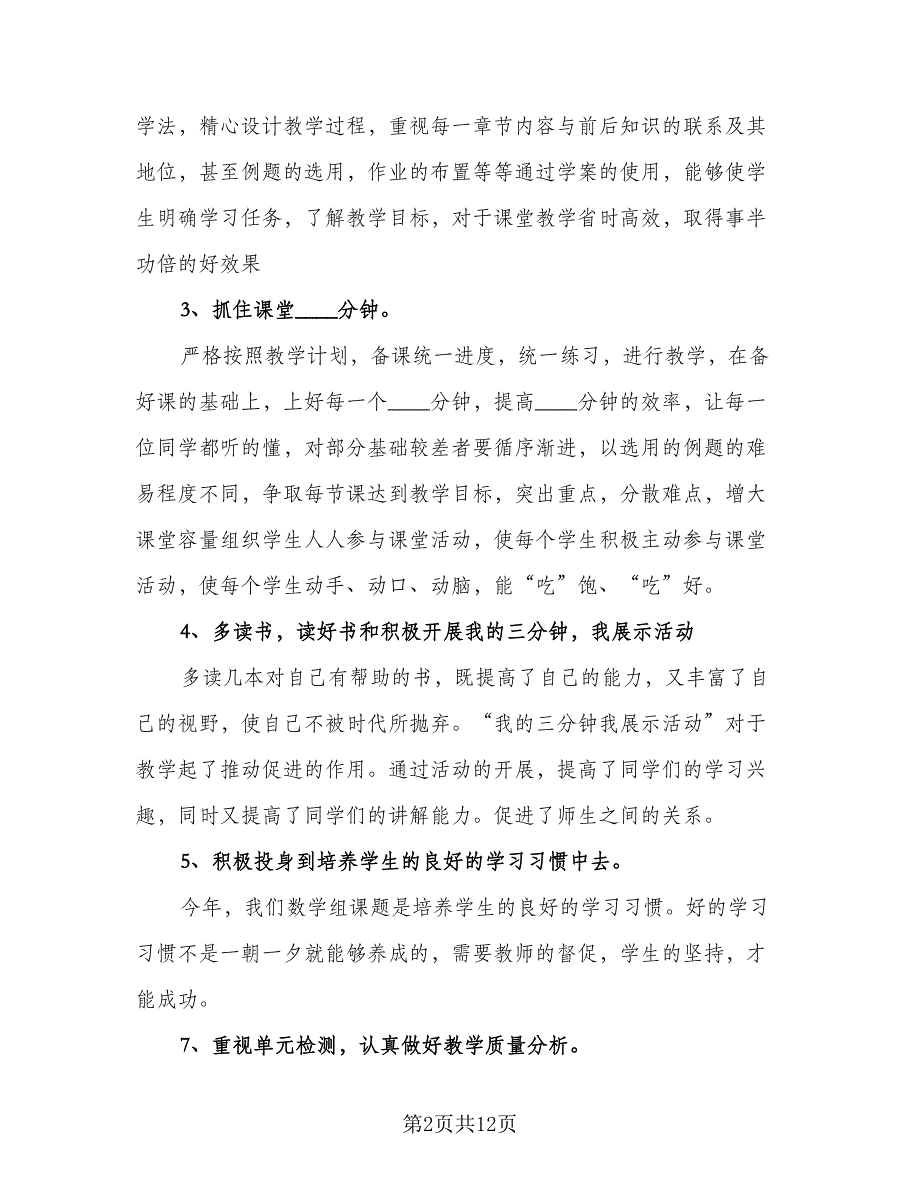 学法，精心设计教学过程，重视每一章节内容与前后知识的联系及其
地位，甚至例题的选用，作业的布置等等通过学案的使用，能够使学
生明确学习任务，了解教学目标，对于课堂教学省时高效，取得事半
功倍的好效果
3、抓住课堂____分钟。
严格按照教学计划，备课统一进度，统一练习，进行教学，在备
好课的基础上，上好每一个____分钟，提高____分钟的效率，让每一
位同学都听的懂，对部分基础较差者要循序渐进，以选用的例题的难
易程度不同，争取每节课达到教学目标，突出重点，分散难点，增大
课堂容量组织学生人人参与课堂活动，使每个学生积极主动参与课堂
活动，使每个学生动手、动口、动脑，能“吃”饱、“吃”好。
4、多读书，读好书和积极开展我的三分钟，我展示活动
多读几本对自己有帮助的书，既提高了自己的能力，又丰富了自
己的视野，使自己不被时代所抛弃。“我的三分钟我展示活动”对于
教学起了推动促进的作用。通过活动的开展，提高了同学们的学习兴
趣，同时又提高了同学们的讲解能力。促进了师生之间的关系。
5、积极投身到培养学生的良好的学习习惯中去。
今年，我们数学组课题是培养学生的良好的学习习惯。好的学习
习惯不是一朝一夕就能够养成的，需要教师的督促，学生的坚持，才
能成功。
7、重视单元检测，认真做好教学质量分析。
第2页共12页